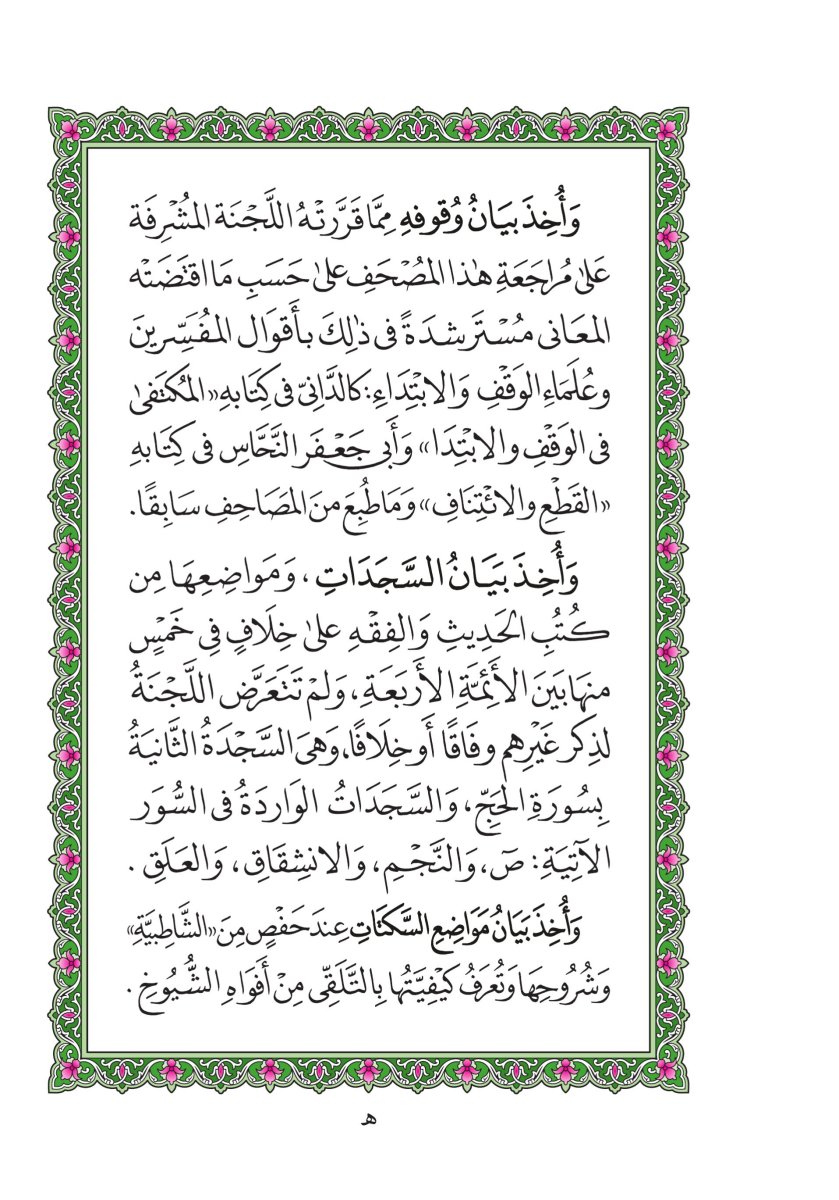 وَأُخِذَ بَيَانُ وُقُوفِهِ مِمَّا قَرَّرَتْهُ اللَّجْنَة المُشْرِفَة
عَلىٰ مُرَاجَعَةِ هٰذا المُصْحَفِ علىٰ حَسَبِ مَا اقتَضَتْه
المعَانى مُسْتَرشدَةً فى ذٰلِكَ بأَقوَال المفُسِّرينَ
وعُلَمَاءِ الوَقْفِ وَالابْتِدَاءِ: كالدَّانىّ فى كِتَابهِ «المُكتَفىٰ
فى الوَقْفِ والابْتِدَا» وَأَبى جَعْفَر النَّحَّاسِ فى كِتَابهِ
«القَطْعِ والائْتِنَافِ» وَمَا طُبِعَ منَ المَصَاحِفِ سَابِقًا.
وَأُخِذَ بَيَانُ السَّجَدَاتِ ، وَمَوَاضِعِهَا مِن
كُتُبِ الحَدِيثِ وَالفِقْهِ علىٰ خِلَافٍ فِى خَمْسٍ
منهَا بَينَ الأَئِمَّةِ الأَربَعَةِ ، وَلمْ تَتَعَرَّض اللَّجْنَةُ
لذِكر غَيْرِهم وِفَاقًا أَو خِلَافًا، وَهىَ السَّجْدَةُ الثَّانيَةُ
بِسُورَةِ الحَجِّ، وَالسَّجَدَاتُ الوَاردَةُ فى السُّوَر
الآتِيَةِ: صٓ، وَالنَّجْـمِ، وَالانشِقَاقِ، وَالعَلَقِ .
وَأُخِذَ بَيَانُ مَوَاضِعِ السَّكتَاتِ عِندَ حَفْصٍ مِنَ «الشَّاطِبيَّةِ»
وَشُرُوحِهَا وَتُعرَفُ كَيْفِيَّتُهَا بِالتَّلَقِّى مِنْ أَفوَاهِ الشُّيُوخِ .
ﻫ